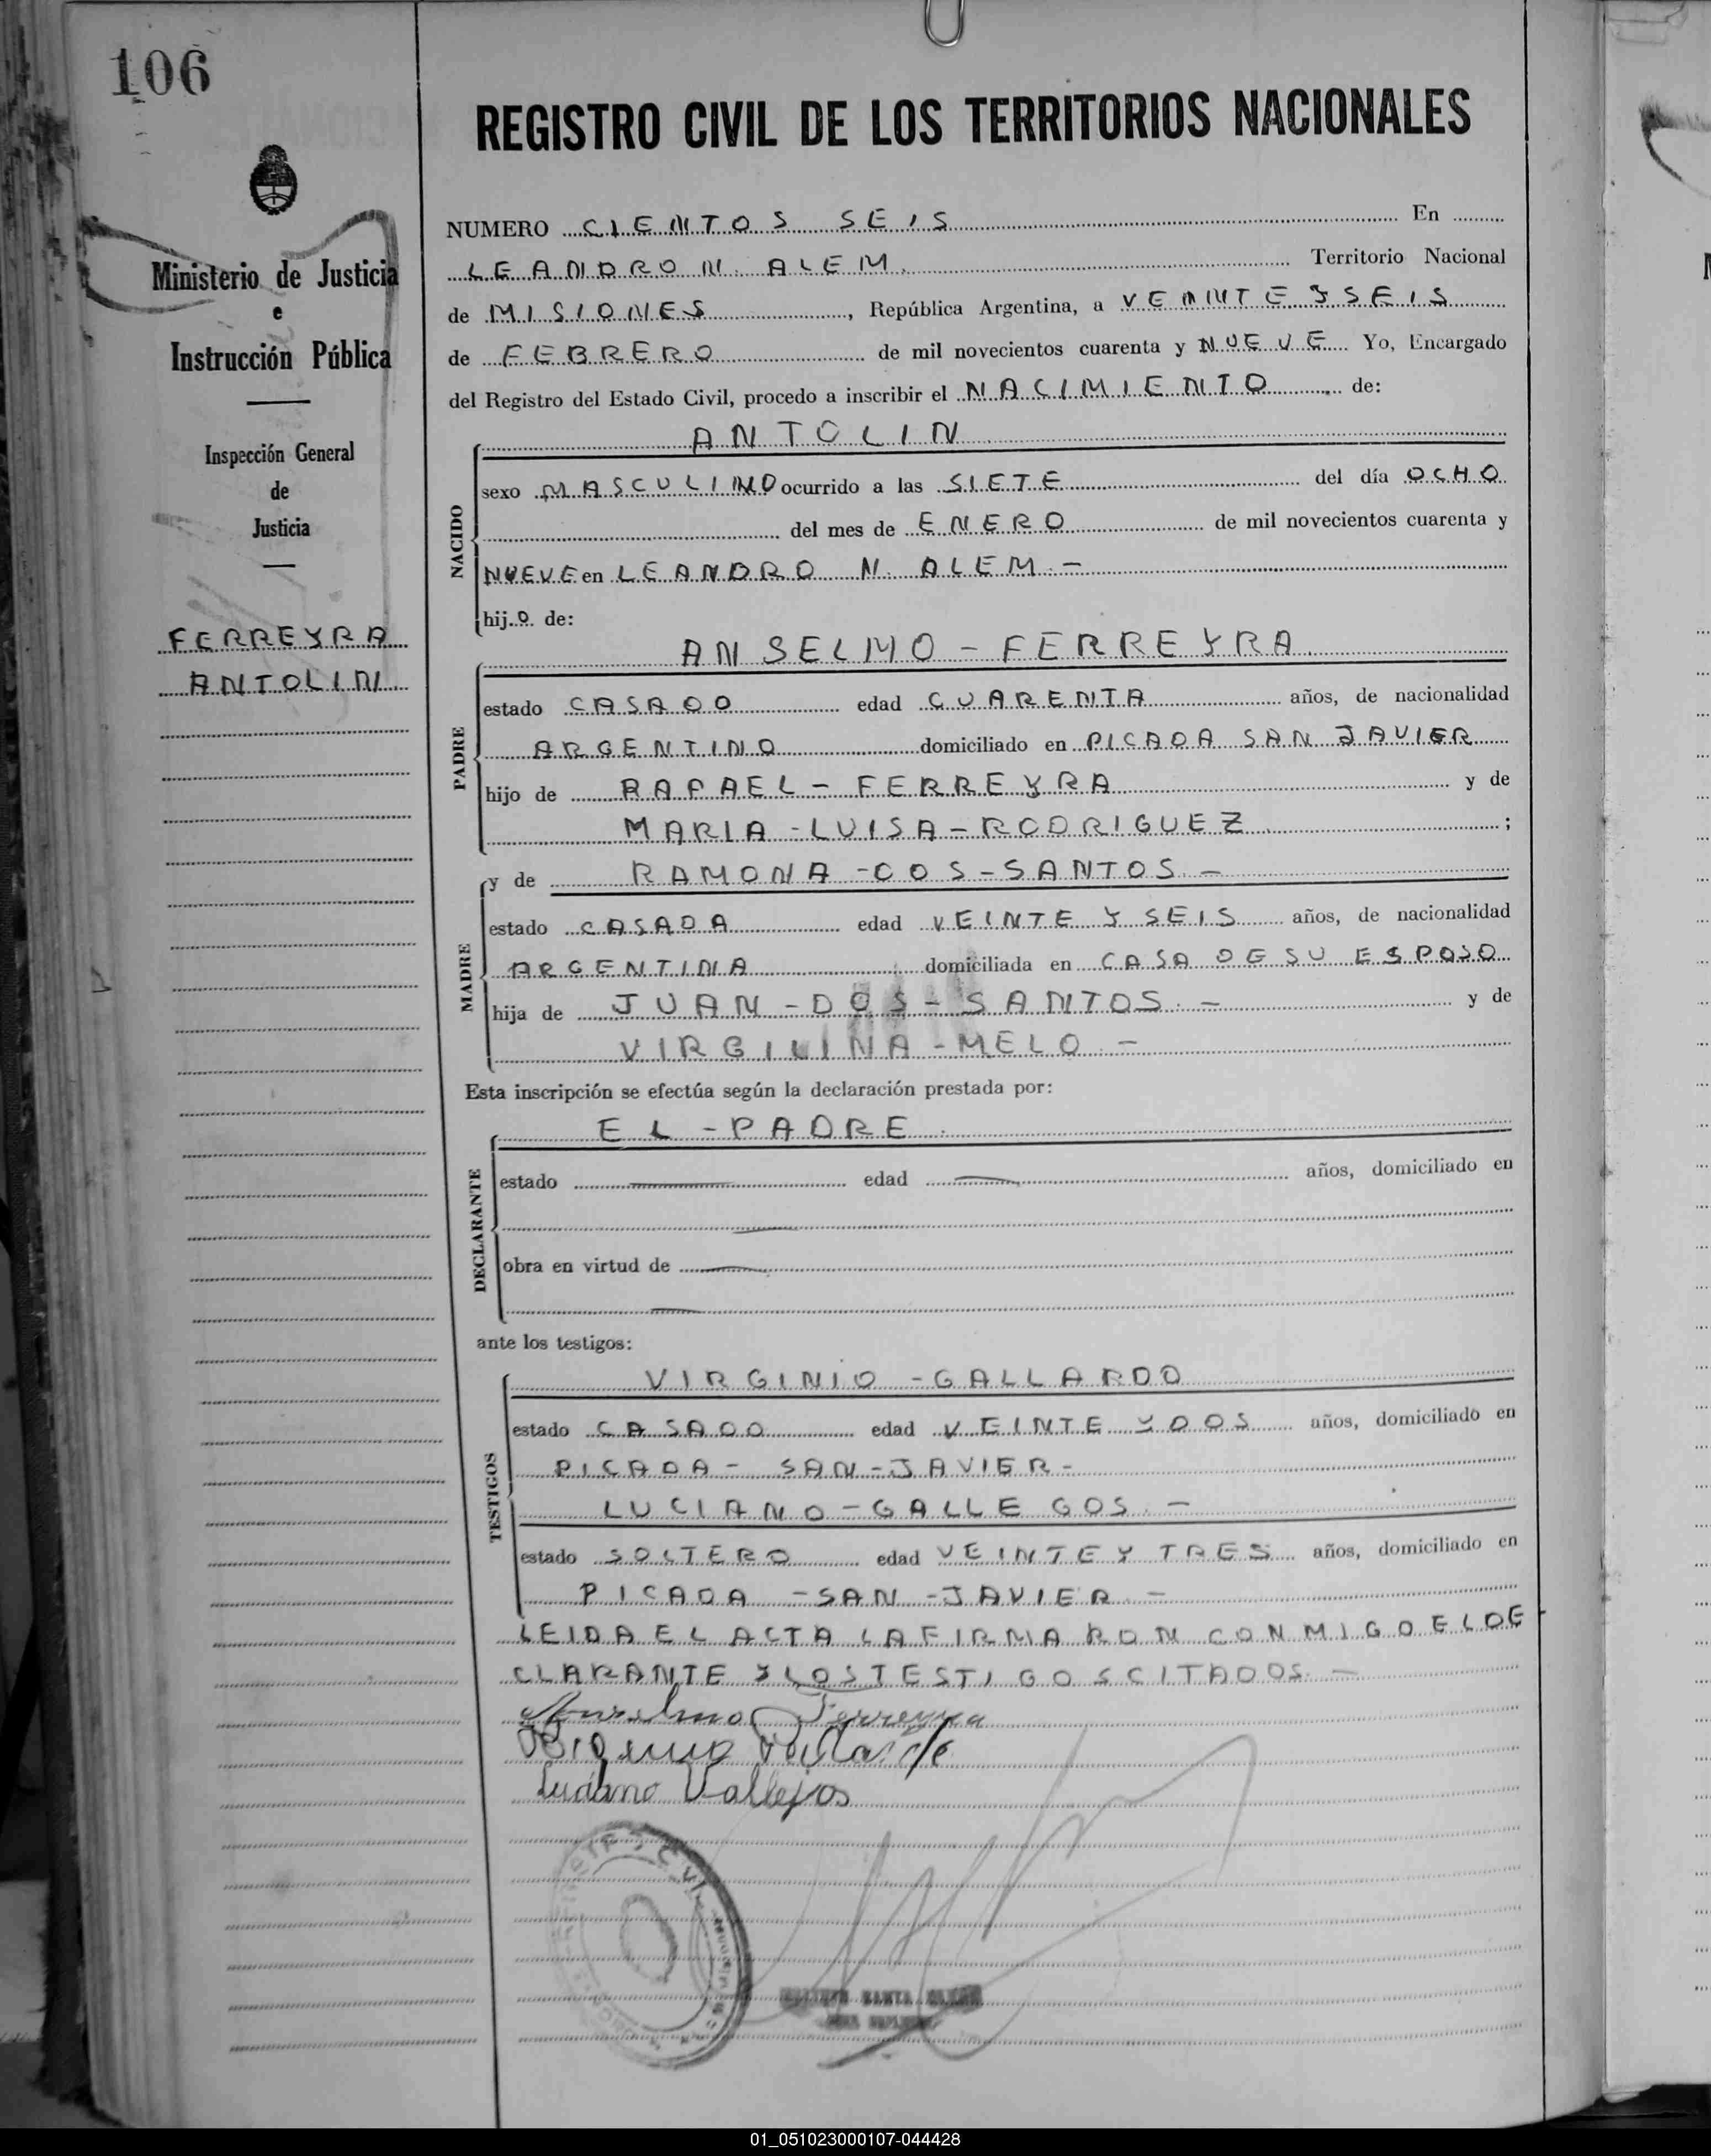 106
REGISTRO CIVIL DE LOS TERRITORIOS NACIONALES
Ministerio de Justicia
e
Instrucción Pública
Inspección General
de
Justicia
FERREYRA
ANTOLIN
NUMERO CIENTOS SEIS En
LEANDRO N. ALEM. Territorio Nacional
de MISIONES, República Argentina, a VEINTE Y SEIS
de FEBRERO de mil novecientos cuarenta y NUEVE Yo, Encargado
del Registro del Estado Civil, procedo a inscribir el NACIMIENTO de:
NACIDO
ANTOLIN
sexo MASCULINO ocurrido a las SIETE del día OCHO
del mes de ENERO de mil novecientos cuarenta y
NUEVE en LEANDRO N. ALEM. -
hijo de:
PADRE
ANSELMO - FERREYRA
estado CASADO edad CUARENTA años, de nacionalidad
ARGENTINO domiciliado en PICADA SAN JAVIER
hijo de RAFAEL - FERREYRA y de
MARIA - LUISA - RODRIGUEZ ;
MADRE
y de RAMONA - DOS - SANTOS. -
estado CASADA edad VEINTE Y SEIS años, de nacionalidad
ARGENTINA domiciliada en CASA DE SU ESPOSO
hija de JUAN - DOS - SANTOS. - y de
VIRGILINA - MELO. -
Esta inscripción se efectúa según la declaración prestada por:
DECLARANTE
EL - PADRE
estado edad años, domiciliado en
obra en virtud de
ante los testigos:
TESTIGOS
VIRGINIO - GALLARDO
estado CASADO edad VEINTE Y DOS años, domiciliado en
PICADA - SAN - JAVIER -
LUCIANO - GALLEGOS. -
estado SOLTERO edad VEINTE Y TRES años, domiciliado en
PICADA - SAN - JAVIER. -
LEIDA EL ACTA LA FIRMARON CONMIGO EL DE
CLARANTE Y LOS TESTIGOS CITADOS. -
Anselmo Ferreyra
Luciano Vallejos
01_051023000107-044428